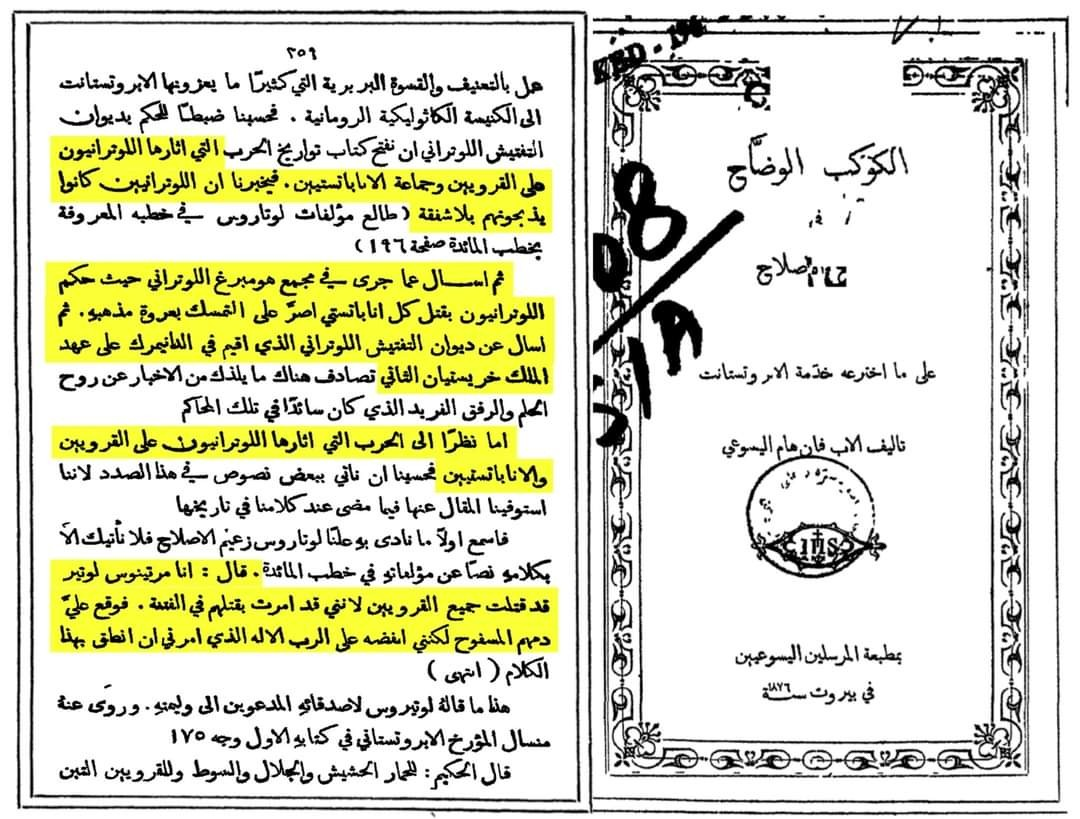 الكوكب الوضَّاح
في
صلاح
على ما اخترعه خدَمة الابروتستانت
تاليف الاب فان هام اليسوعي
IHS
بمطبعة المرسلين اليسوعيين
في بيروت سنة ١٨٧٦
٢٥٩
عل بالتعنيف والقسوة البربرية التي كثيرًا ما يعزونها الابروتستانت
الى الكنيسة الكاثوليكية الرومانية . فحسبنا ضبطًا للحكم بديوان
التفتيش اللوتراني ان نفتح كتاب تواريخ الحرب التي اثارها اللوترانيون
على القرويين وجماعة الاناباتستيين . فيخبرنا ان اللوترانيين كانوا
يذبحونهم بلا شفقة ( طالع مؤلفات لوتاروس في خطبه المعروفة
بخطب المائدة صفحة ١٩٦ )
ثم اسال عما جرى في مجمع هومبرغ اللوتراني حيث حكم
اللوترانيون بقتل كل اناباتستي اصرَّ على التمسك بعروة مذهبهِ . ثم
اسال عن ديوان التفتيش اللوتراني الذي اقيم في الدانيمرك على عهد
الملك خريستيان الثاني تصادف هناك ما يلذك من الاخبار عن روح
الحلم والرفق الفريد الذي كان سائدًا في تلك المحاكم
اما نظرًا الى الحرب التي اثارها اللوترانيون على القرويين
والاناباتستيين فحسبنا ان ناتي ببعض نصوص في هذا الصدد لاننا
استوفينا المقال عنها فيما مضى عند كلامنا في تاريخها
فاسمع اولاً ما نادى بهِ علنًا لوتاروس زعيم الاصلاح فلا نأتيك الاَّ
بكلامهِ نصًا عن مؤلفاتهِ في خطب المائدة . قال : انا مرتينوس لوتير
قد قتلت جميع القرويين لانني قد امرت بقتلهم في الفتنة . فوقع عليَّ
دمهم المسفوح لكنني انفضه على الرب الاله الذي امرني ان انطق بهذا
الكلام ( انتهى )
هذا ما قالهُ لوتيروس لاصدقائهِ المدعوين الى وليمتهِ . وروى عنهُ
منسال المؤرخ الابروتستاني في كتابهِ الاول وجه ١٧٥
قال الحكيم : للحمار الحشيش والجلال والسوط وللقرويين التبن